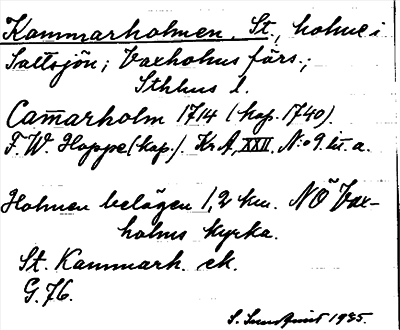 Kammarholmen, St., holme i
Saltsjön; Vaxholms förs.;
Sthlms l.
Cam̄arholm 1714 (kop. 1740).
F.W. Hoppe (kop.). Kr A, XXII. N:o 9 lit. a.
Holmen belägen 1,2 km. NÖ Vax-
holms kyrka.
St. Kammarh. ek.
G.76.
S. Sundqvist 1935.